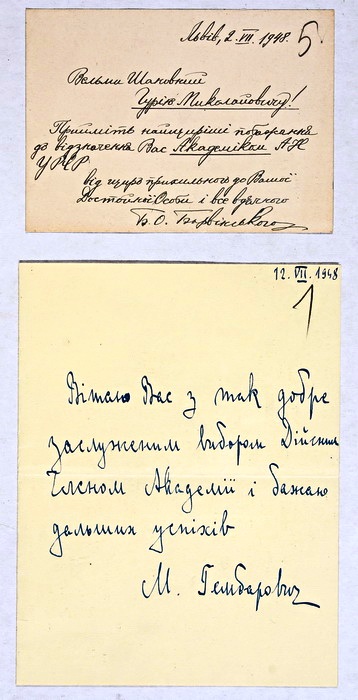 Львів, 2. VII. 1948.
5
Вельми Шановний
Гурію Миколайовичу!
Прийміть найщиріші побажання
до відзначення Вас Академіком АН
УРСР
від щиро прихильного до Вашої
Достойної Особи і все вдячного
Б. О. Барвінського
12. VII. 1948
1
Вітаю Вас з так добре
заслуженим вибором Дійсним
Членом Академії і бажаю
дальших успіхів
М. Гембарович